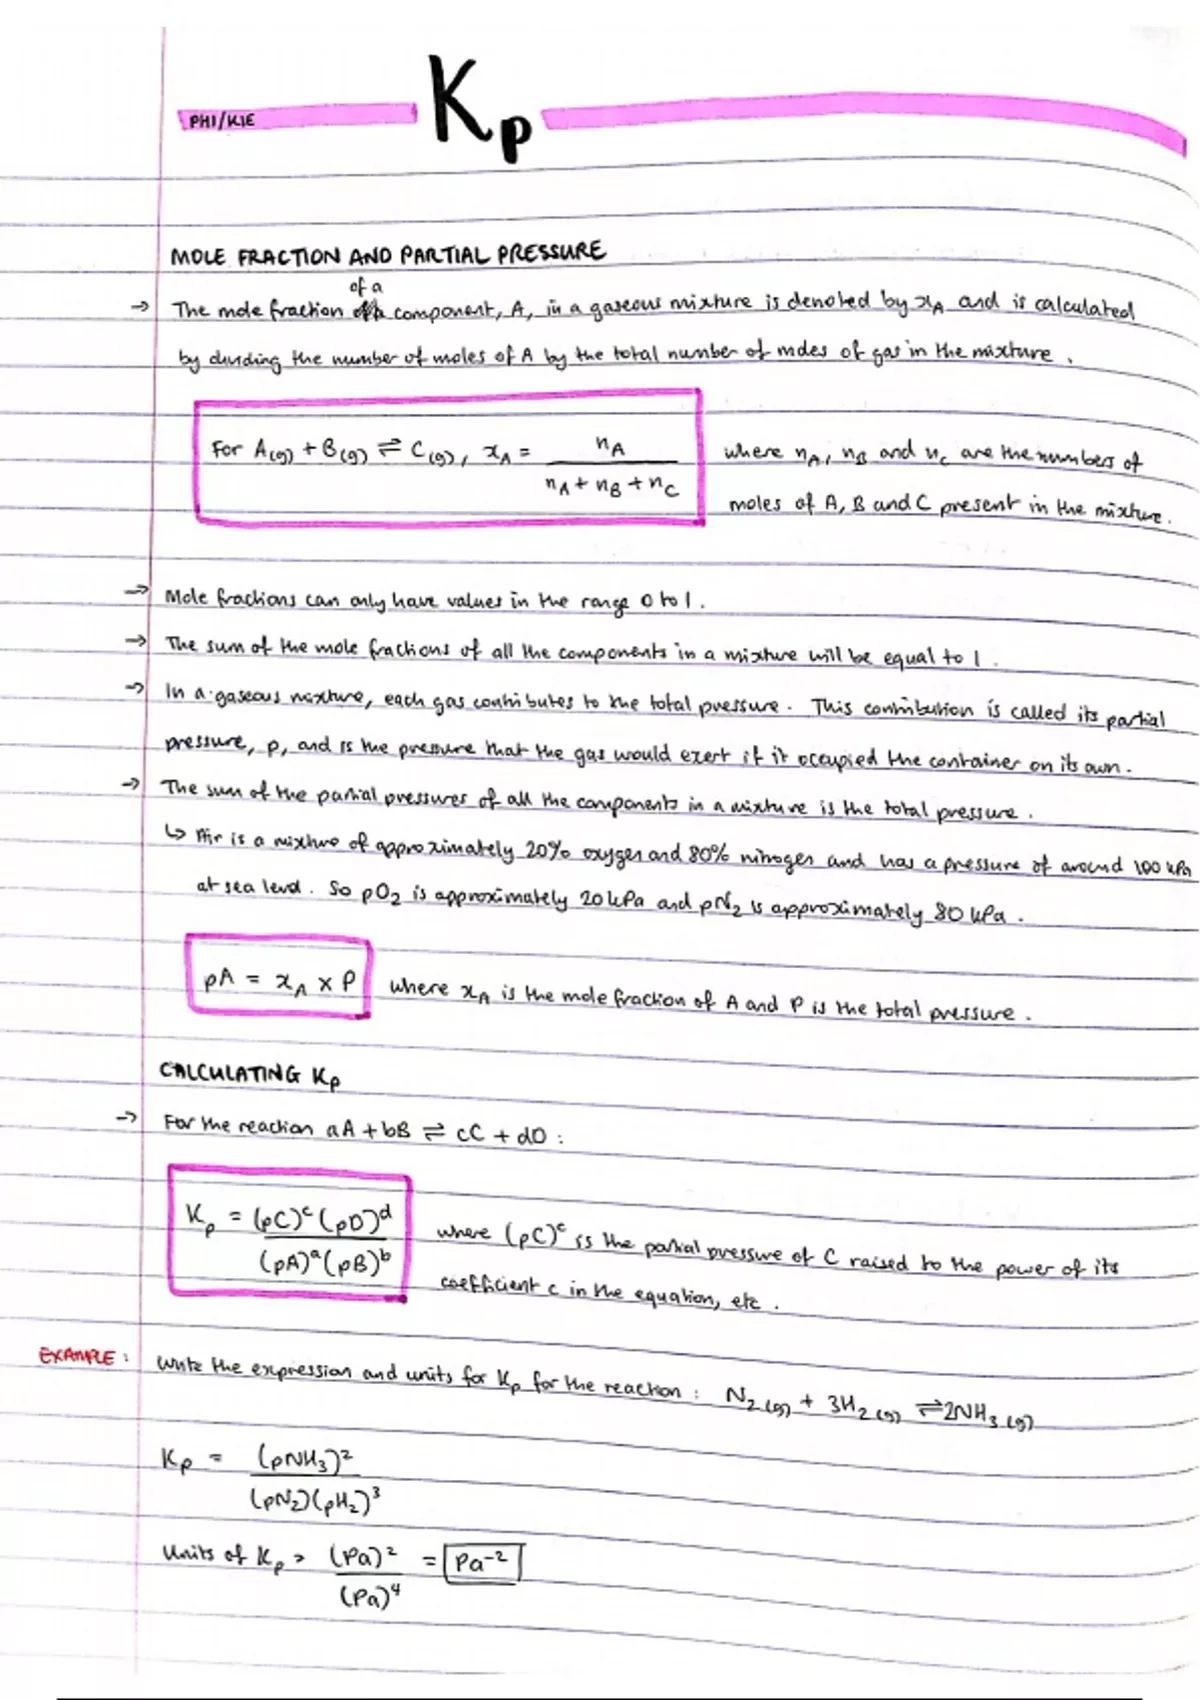 PHI/KIE
Kp
MOLE FRACTION AND PARTIAL PRESSURE
of a
→ The mole fraction component, A, in a gaseous mixture is denoted by xA and is calculated
by dividing the number of moles of A by the total number of moles of gas in the mixture.
For A(g) + B(g) ⇌ C(g), xA = nA / (nA + nB + nC) where nA, nB and nC are the numbers of
moles of A, B and C present in the mixture.
→ Mole fractions can only have values in the range 0 to 1.
→ The sum of the mole fractions of all the components in a mixture will be equal to 1.
→ In a gaseous mixture, each gas contributes to the total pressure. This contribution is called its partial
pressure, p, and is the pressure that the gas would exert if it occupied the container on its own.
→ The sum of the partial pressures of all the components in a mixture is the total pressure.
↳ Air is a mixture of approximately 20% oxygen and 80% nitrogen and has a pressure of around 100 kPa
at sea level. So pO₂ is approximately 20 kPa and pN₂ is approximately 80 kPa.
pA = xA × P where xA is the mole fraction of A and P is the total pressure.
CALCULATING Kp
→ For the reaction aA + bB ⇌ cC + dD:
Kp = (pC)ᶜ(pD)ᵈ / (pA)ᵃ(pB)ᵇ where (pC)ᶜ is the partial pressure of C raised to the power of its
coefficient c in the equation, etc.
EXAMPLE: Write the expression and units for Kp for the reaction: N₂(g) + 3H₂(g) ⇌ 2NH₃(g)
Kp = (pNH₃)²
(pN₂)(pH₂)³
Units of Kp = (Pa)² = Pa⁻²
(Pa)⁴